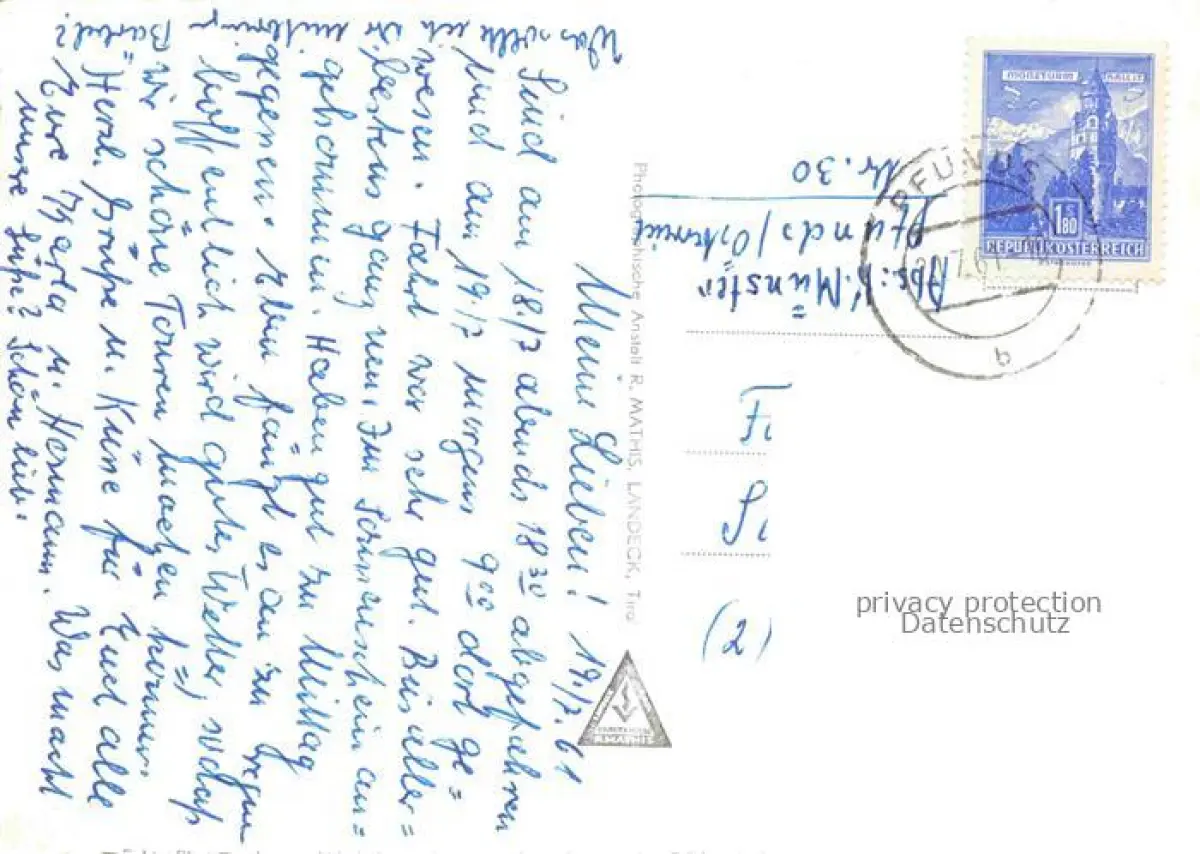 Meine Lieben! 19./7.61
Sind am 18./7 abends 18 30 abgefahren
und am 19./7 morgens 9 00 dort ge=
wesen. Fahrt war sehr gut. Bus aller=
bestens ganz neu. Im Sonnenschein an=
gekommen. Haben gut zu Mittag
gegessen. Eben fängt es an zu regnen
hoffentlich wird gutes Wetter, sodaß
wir schöne Touren machen können.
Herzl. Grüße u. Küsse für Euch alle
Eure Berta u. Hermann. Was macht
unsere Süße? Schön lieb.
Was sollte ich
mitbringen
Bärbel?
Photographische Anstalt R. MATHIS, LANDECK, Tirol
R. MATHIS
Abs.: H. Münster
Pfunds/Österreich
Nr. 30
F
S
(2)
PFUNDS
7.61
MÜNZTURM HALL I.T.
S
1.80
REPUBLIK ÖSTERREICH
privacy protection
Datenschutz